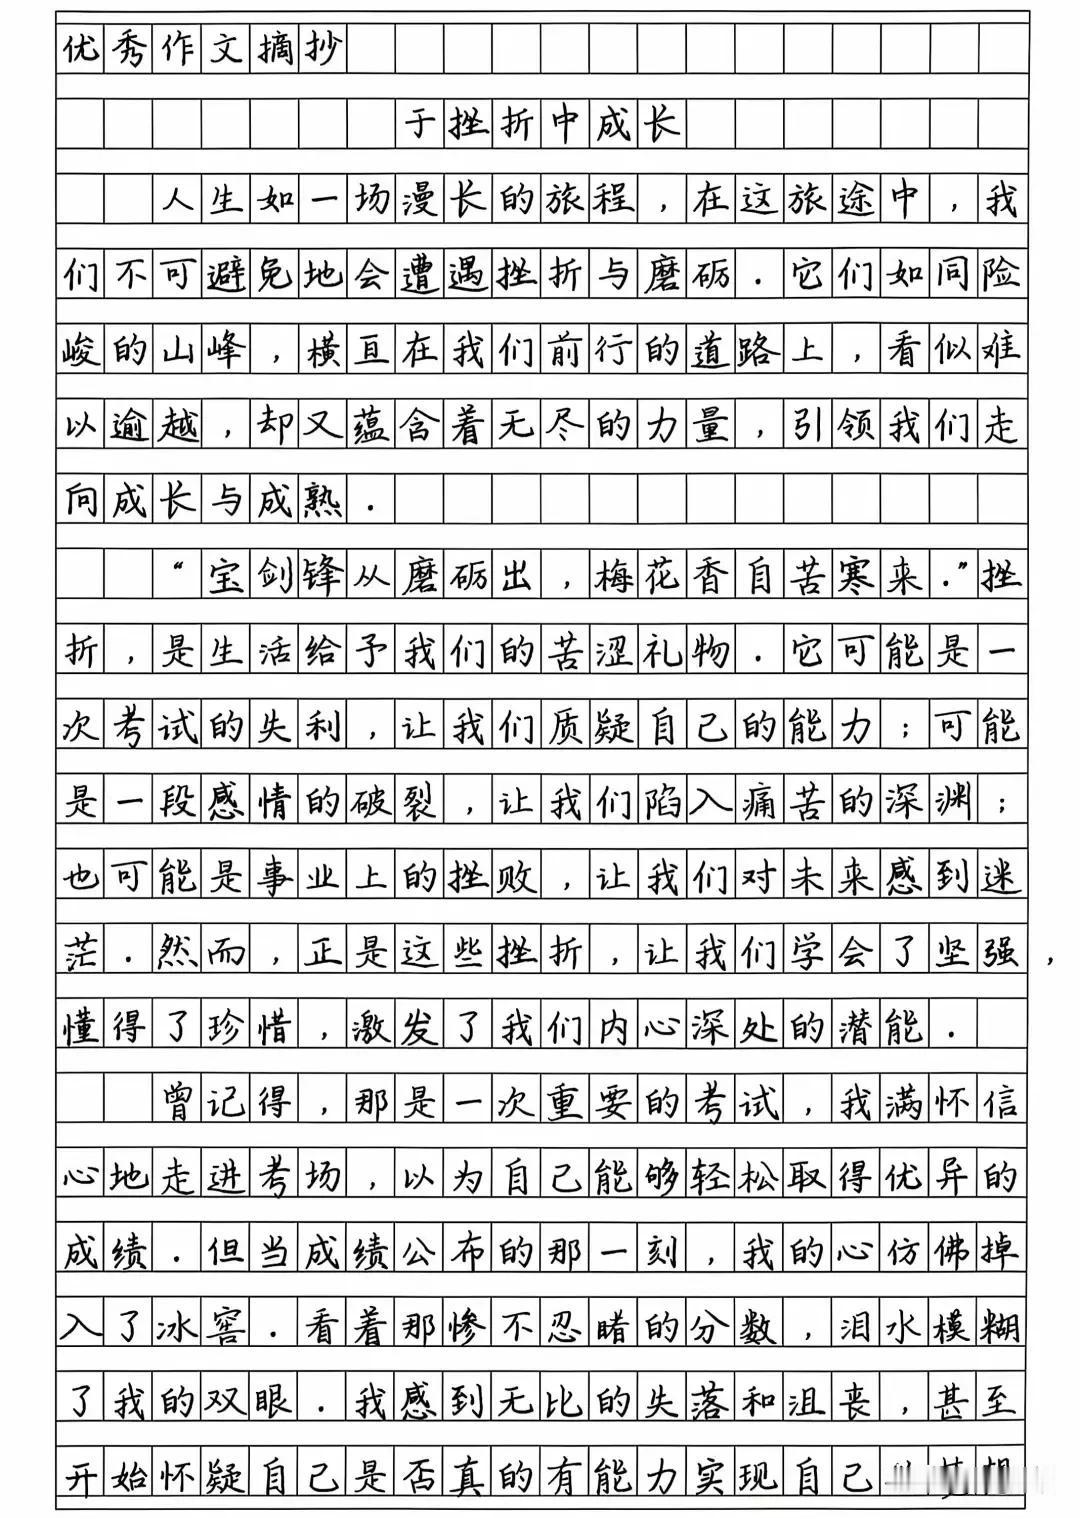 优秀作文摘抄
于挫折中成长
人生如一场漫长的旅程,在这旅途中,我
们不可避免地会遭遇挫折与磨砺.它们如同险
峻的山峰,横亘在我们前行的道路上,看似难
以逾越,却又蕴含着无尽的力量,引领我们走
向成长与成熟.
“宝剑锋从磨砺出,梅花香自苦寒来.”挫
折,是生活给予我们的苦涩礼物.它可能是一
次考试的失利,让我们质疑自己的能力;可能
是一段感情的破裂,让我们陷入痛苦的深渊;
也可能是事业上的挫败,让我们对未来感到迷
茫.然而,正是这些挫折,让我们学会了坚强,
懂得了珍惜,激发了我们内心深处的潜能.
曾记得,那是一次重要的考试,我满怀信
心地走进考场,以为自己能够轻松取得优异的
成绩.但当成绩公布的那一刻,我的心仿佛掉
入了冰窖.看着那惨不忍睹的分数,泪水模糊
了我的双眼.我感到无比的失落和沮丧,甚至
开始怀疑自己是否真的有能力实现自己